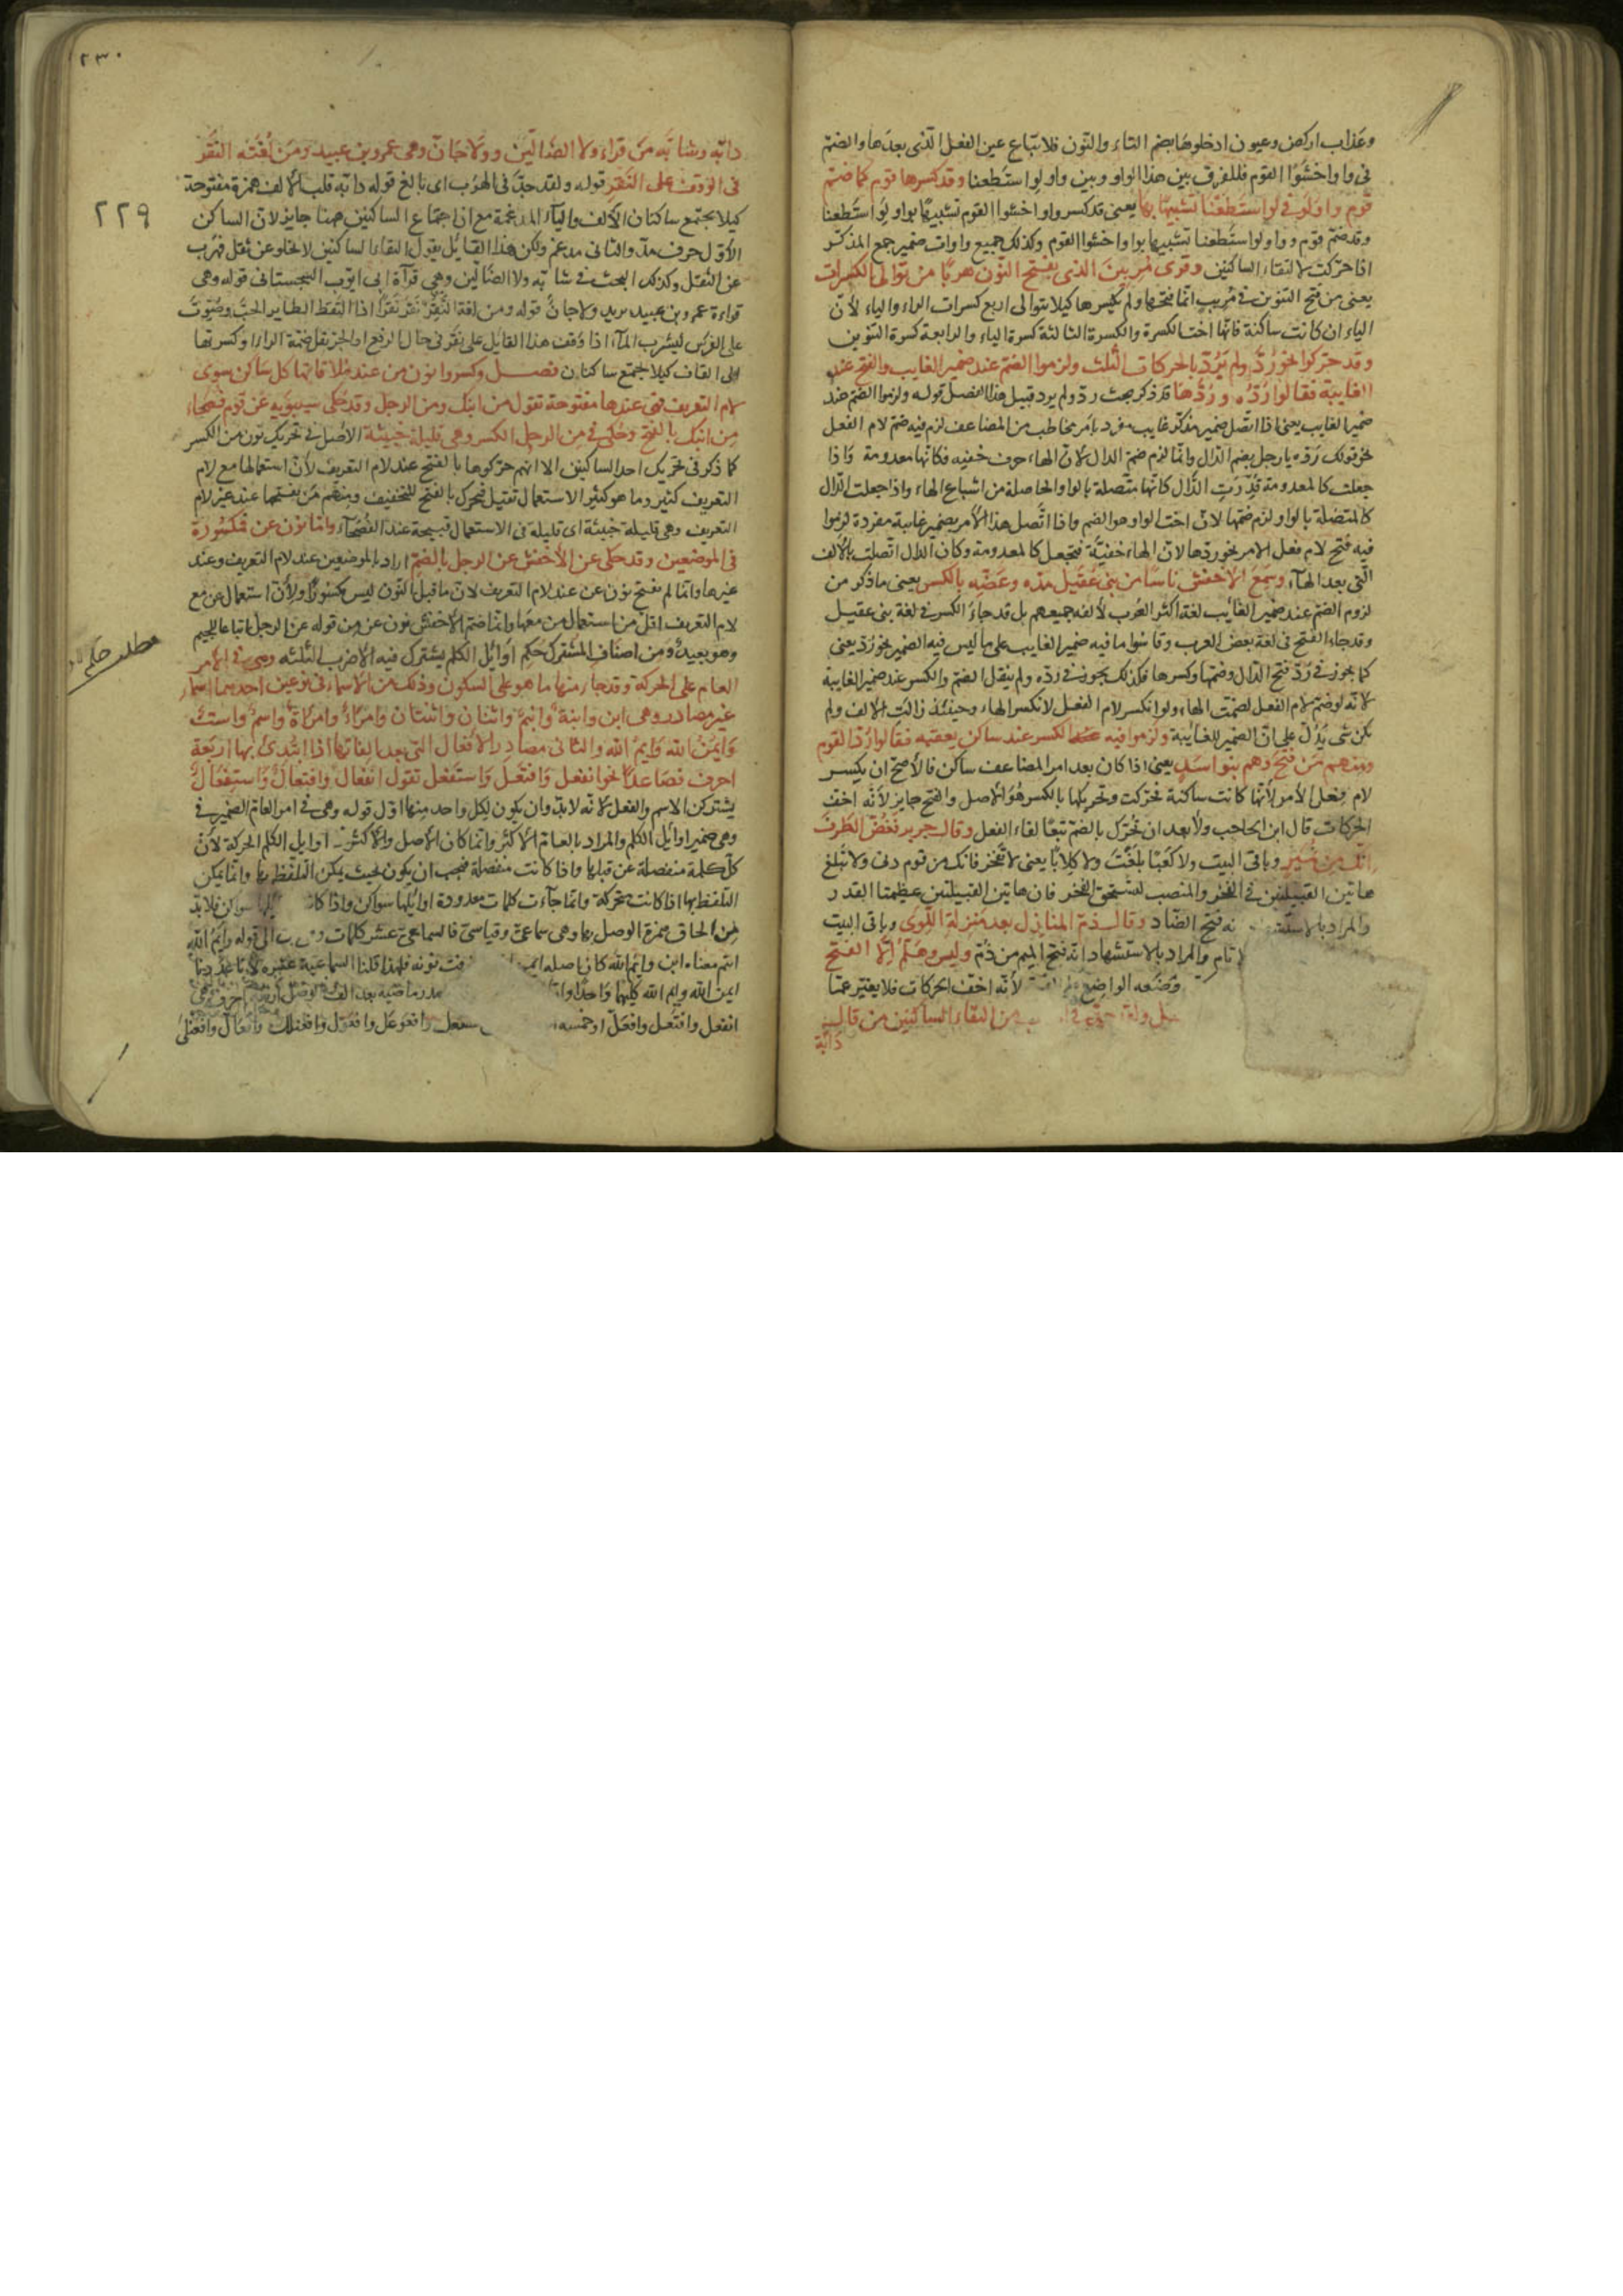 وعذاب اركض وعيون ادخلوها بضم التاء والنون فلاتباع عين الفعل الذى بعدها والضم
فى واو اخشوا القوم فللفرق بين هذا الواو وبين واو لو استطعنا وقد كسرها قوم كما ضم
قوم واو لو فى لو استطعنا تشبيها بها يعنى قد كسر واو اخشوا القوم تشبيها بواو لو استطعنا
وقد ضم قوم واو لو استطعنا تشبيها بواو اخشوا القوم وكذلك جميع واوات ضمير جمع المذكر
اذا حركت لالتقاء الساكنين وقرى مريبن الذى بفتح النون هربا من توالى الكسرات
يعنى من فتح التنوين فى مريب انما فتحها ولم يكسرها كيلا يتوالى اربع كسرات الراء والياء لان
الياء ان كانت ساكنة فانها اخت الكسرة والكسرة الثالثة كسرة الباء والرابعة كسرة التنوين
وقد حركوا نحو رد ولم يرد بالحركات الثلث ولزموا الضم عند ضمير الغايب والفتح عند
الغايبة فقالوا رده وردها قد ذكر بحث رد ولم يرد قبيل هذا الفصل قوله ولزموا الضم عند
ضمير الغايب يعنى اذا اتصل ضمير مذكر غايب مفرد بامر مخاطب من المضاعف لزم فيه ضم لام الفعل
نحو قولك رده يا رجل بضم الدال وانما لزم ضم الدال لان الهاء حرف خفيه فكانها معدومة واذا
جعلت كالمعدومة قدرت الدال كانها متصلة بالواو الحاصلة من اشباع الهاء واذا جعلت الدال
كالمتصلة بالواو لزم ضمها لان اخت الواو هو الضم واذا اتصل هذا الامر بضمير غايبة مفردة لزموا
فيه فتح لام فعل الامر نحو ردها لان الهاء خفية فتجعل كالمعدومة وكان الدال اتصلت بالالف
التى بعد الهاء وسمع الاخفش ناسا من بنى عقيل مده وعضه بالكسر يعنى ما ذكر من
لزوم الضم عند ضمير الغايب لغة اكثر العرب لا لغة جميعهم بل قد جاء الكسر فى لغة بنى عقيل
وقد جاء الفتح فى لغة بعض العرب وقاسوا ما فيه ضمير الغايب على ما ليس فيه الضمير نحو رد يعنى
كما يجوز فى رد فتح الدال وضمها وكسرها فكذلك يجوز فى رده ولم ينقل الضم والكسر عند ضمير الغايبة
لانه لو ضم لام الفعل لضمت الهاء ولو انكسر لام الفعل لانكسر الهاء وحينئذ زالت الالف ولم
يكن شى يدل على ان الضمير للغايبة ولزموا فيه الكسر عند ساكن يعقبه فقالوا رد القوم
ومنهم من فتح وهم بنو اسد يعنى اذا كان بعد امر المضاعف ساكن فالاصح ان يكسر
لام فعل الامر لانها كانت ساكنة تحركت وتحريكها بالكسر هو الاصل والفتح جايز لانه اخف
الحركات قال ابن الحاجب ولا يعد ان تحرك بالضم تبعا لفاء الفعل وقال جرير فغض الطرف
انك من نمير وباقى البيت ولا كعبا بلغت ولا كلابا يعنى لا تفخر فانك من قوم دنى ولا تبلغ
هاتين القبيلتين فى الفخر والمنصب لتستحق الفخر فان هاتين القبيلتين عظيمتا القدر
والمراد بالاستشهاد انه فتح الضاد وقال ذم المنازل بعد منزلة اللوى وباقى البيت
والمراد بالاستشهاد انه فتح الميم من ذم وليس فى هلم الا الفتح
وضعه الواضع لانه اخف الحركات فلا يغير عما
ولقد جد فى من التقاء الساكنين من قال
دابة
٢٣٠
٢٢٩
دابة وشابة من قراء ولا الضالين وولا جان وهى عمرو بن عبيد ومن لغته النقر
فى الوقف على النقر قوله ولقد جد فى الهرب اى بالغ قوله دابة قلب الالف همزة مفتوحة
كيلا يجتمع ساكنان الالف والياء المدغمة مع ان اجتماع الساكنين ههنا جايز لان الساكن
الاول حرف مد والثانى مدغم ولكن هذا القايل يقول التقاء الساكنين لا يخلو عن ثقل فهرب
عن الثقل وكذلك البحث فى شابة ولا الضالين وهى قرآة ابى ايوب السجستانى قوله وهى
قراءة عمرو بن عبيد يريد ولا جان قوله ومن لغته النقر نقر نقرا اذا التقط الطاير الحب وصوت
على الفرس ليشرب الماء اذا وقف هذا القايل على نقر فى حال الرفع او الجر نقل ضمة الراء او كسرتها
الى القاف كيلا يجتمع ساكنان فصل وكسروا نون من عند ملاقاتها كل ساكن سوى
لام التعريف فهى عندها مفتوحة تقول من ابنك ومن الرجل وقد حكى سيبويه عن قوم فصحاء
من ابنك بالفتح وحكى فى من الرجل الكسر وهى قليلة خبيثة الاصل فى تحريك نون من الكسر
كما ذكر فى تحريك احد الساكنين الا انهم حركوها بالفتح عند لام التعريف لان استعمالها مع لام
التعريف كثير وما هو كثير الاستعمال ثقيل فحرك بالفتح للتخفيف ومنهم من يفتحها عند غير لام
التعريف وهى قليلة خبيثة اى قليلة فى الاستعمال قبيحة عند الفصحاء واما نون عن فمكسورة
فى الموضعين وقد حكى عن الاخفش عن الرجل بالضم اراد بالموضعين عند لام التعريف وعند
غيرها وانما لم يفتح نون عن عند لام التعريف لان ما قبل النون ليس بمكسور ولان استعمال عن مع
لام التعريف اقل من استعمال من معها وانما ضم الاخفش نون عن من قوله عن الرجل اتباعا للجيم
وهو بعيد ومن اصناف المشترك حكم اوايل الكلم يشترك فيه الاضرب الثلثه وهى فى الامر
العام على الحركة وقد جاء منها ما هو على السكون وذلك من الاسماء فى نوعين احدهما اسماء
غير مصادر وهى ابن وابنة وابنم واثنان واثنتان وامرء وامراة واسم واست
وايمن الله وايم الله والثانى مصادر الافعال التى بعد الفاتها اذا ابتدى بها اربعة
احرف فصاعدا نحو انفعل وافتعل واستفعل تقول انفعال وافتعال واستفعال
يشترك الاسم والفعل لانه لا بد وان يكون لكل واحد منهما اول قوله وهى فى امر العام الضمير فى
وهى ضمير اوايل الكلم والمراد بالعام الاكثر وانما كان الاصل والاكثر فى اوايل الكلم الحركة لان
كل كلمة منفصلة عن قبلها واذا كانت منفصلة فيجب ان يكون بحيث يمكن التلفظ بها وانما يمكن
التلفظ بها اذا كانت متحركة وانما جاءت كلمات معدودة اوايلها سواكن واذا كان اوايلها سواكن فلا بد
من الحاق همزة الوصل بها وهى سماعى وقياسى فالسماعى عشر كلمات الى قوله وايم الله
ابنم معناه ابن وايم الله كان اصله ايمن فحذفت نونه فلهذا قلنا السماعية عشرة لانا عددنا
ايمن الله وايم الله كليهما واحدا ماضيه بعد الف الوصل اربعة احرف وهى
انفعل وافتعل وافعل او خمسة استفعل وافعوعل وافعول وافعنلل وافعال وافعنلى